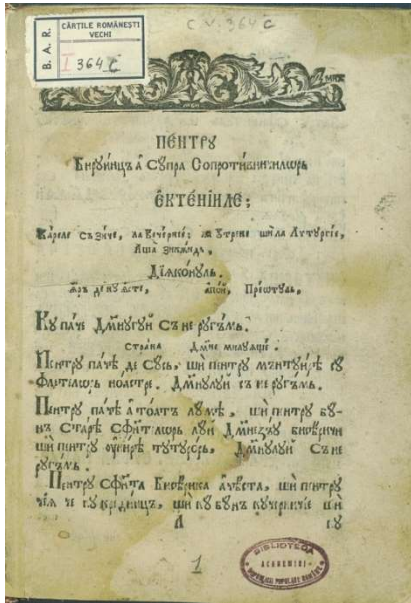 C.V. 364 C
B. A. R.
CĂRȚILE ROMÂNEȘTI
VECHI
I 364 C
ПЕНТРꙋ
Бирꙋинца Сꙋпра Сопротивничилѡрь
ЕКТЕНІИЛЕ;
Кареле съ зиче, ла Вечерніе; ла ꙋтрене ши ла Литꙋргіе,
Аша зикѫндь,
Діѧконꙋль.
ꙗръ де нꙋ ѩсте, апои, Преѡтꙋль,
Кꙋ паче Дмнꙋлꙋй Съ не рꙋгъмь.
Страна Дмне милꙋѩще.
Пентрꙋ паче де Сꙋсь, ши пентрꙋ мънтꙋирѣ сꙋ
флетелѡрь ноастре. Дмнꙋлꙋй съ не рꙋгъмь.
Пентрꙋ паче а тоатъ лꙋмѣ, ши пентрꙋ бꙋ-
нъ Старѣ Сфителѡрь лꙋй Дмнезъꙋ бисѣричи
ши пентрꙋ ꙋнирѣ тꙋтꙋрѡрь, Дмнꙋлꙋй Съ не
рꙋгъмь.
Пентрꙋ Сфѫнта Бисѣрика ачѣста, ши пентрꙋ
чѣѧ че кꙋ крединцъ, ши кꙋ бꙋнъ кꙋчерничіе ши
А кꙋ
1
BIBLIOTECA
ACADEMIEI
REPUBLICII POPULARE ROMÂNE